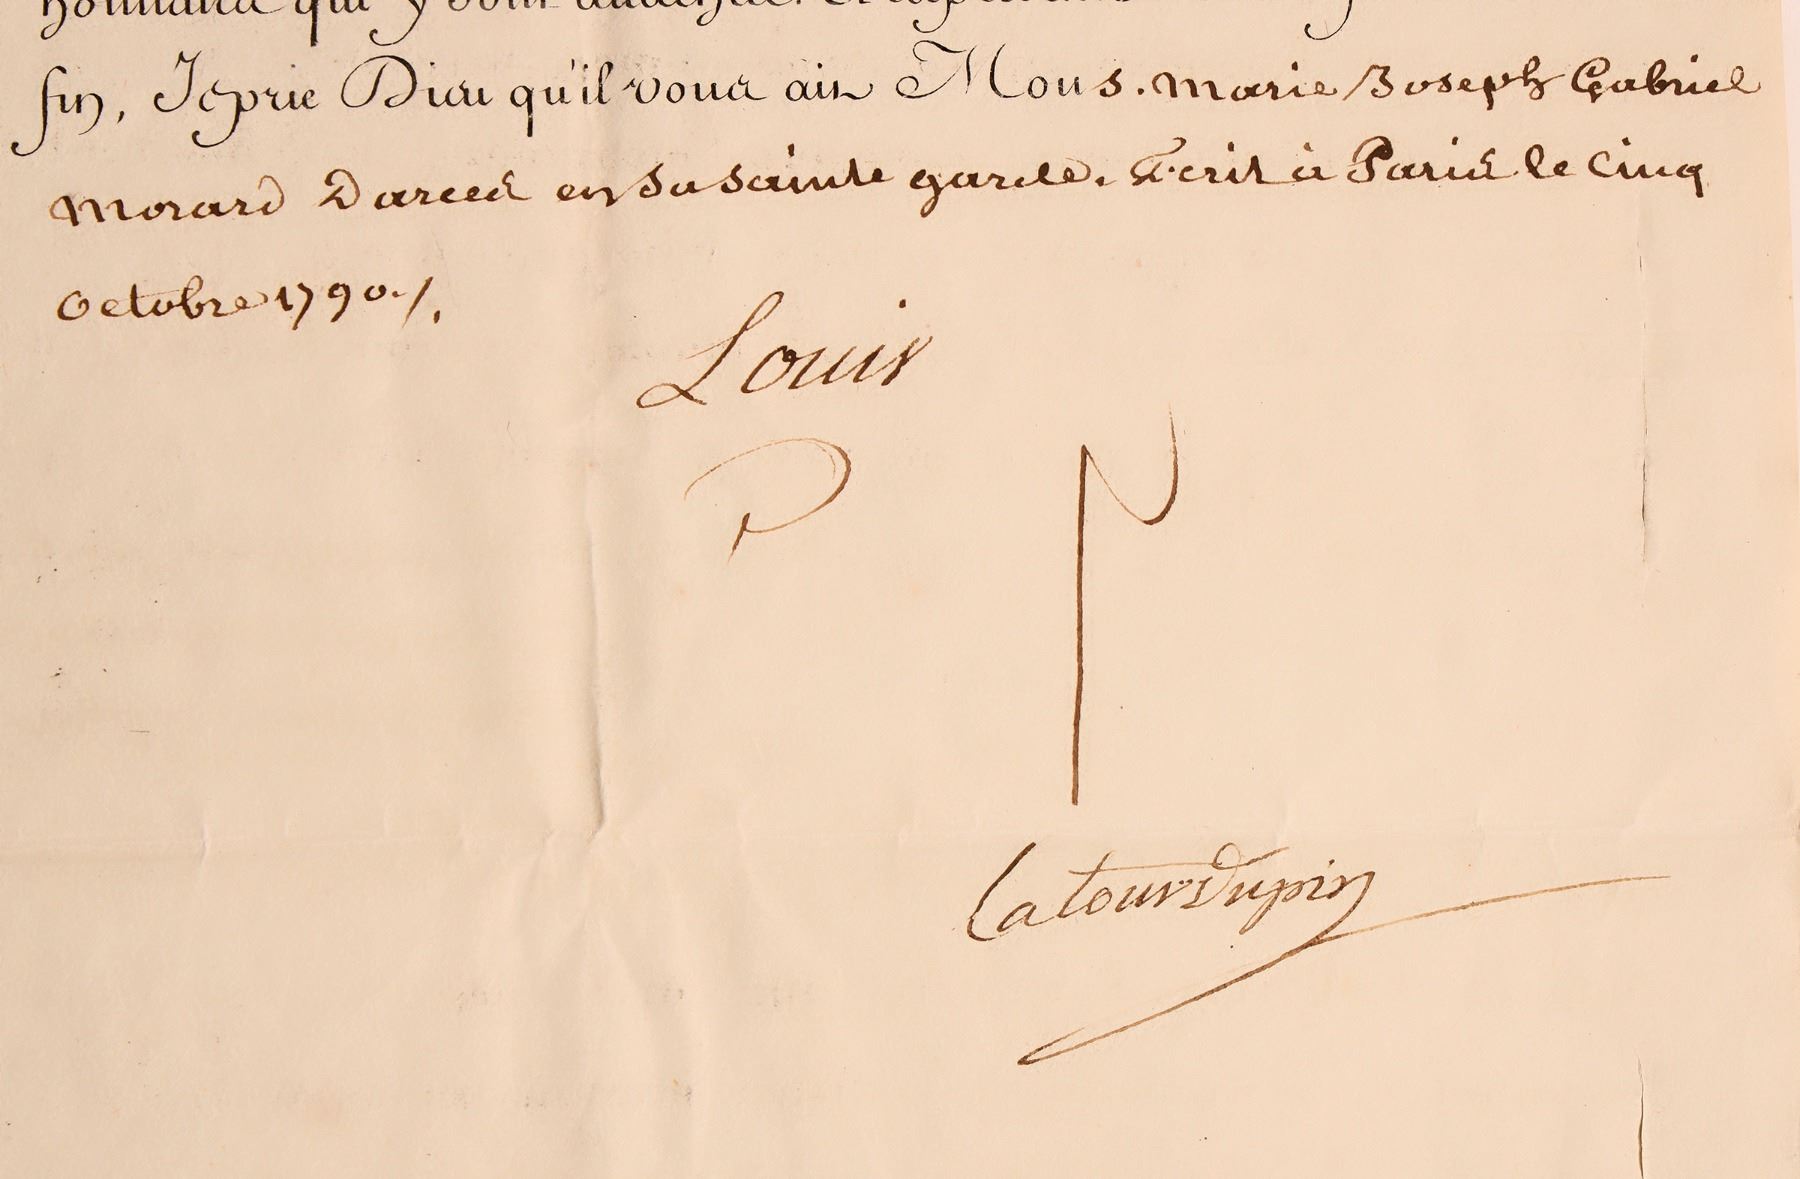 qui y sont
fin, Je prie Dieu qu'il vous ait Mons. Marie Joseph Gabriel
Morard Darces en sa sainte garde. Ecrit à Paris le Cinq
Octobre 1790./.
Louis
Latourdupin